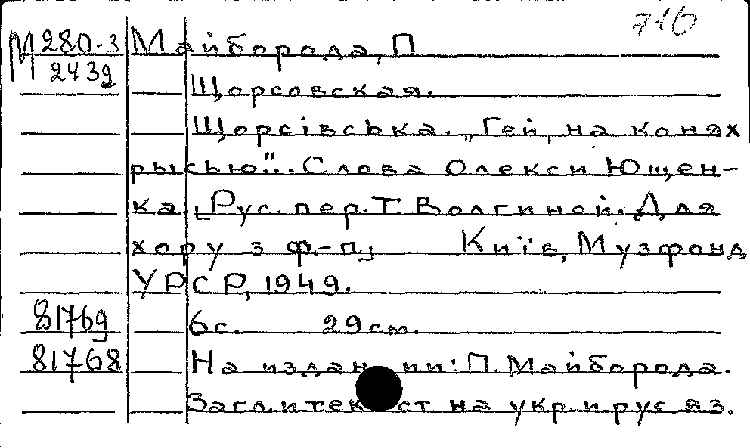 716
М 280-3 Майборода, П
2439
Щорсовская.
Щорсівська. „Гей, на конях
рысью”.. Слова Олекси Ющен-
ка [Рус. пер. Т. Волгиной. Для
хору з ф.-п.] Київ, Музфонд
УРСР, 1949.
81769 6с. 29см.
81768 На издании: П. Майборода.
Загл. и текст на укр. и рус яз.